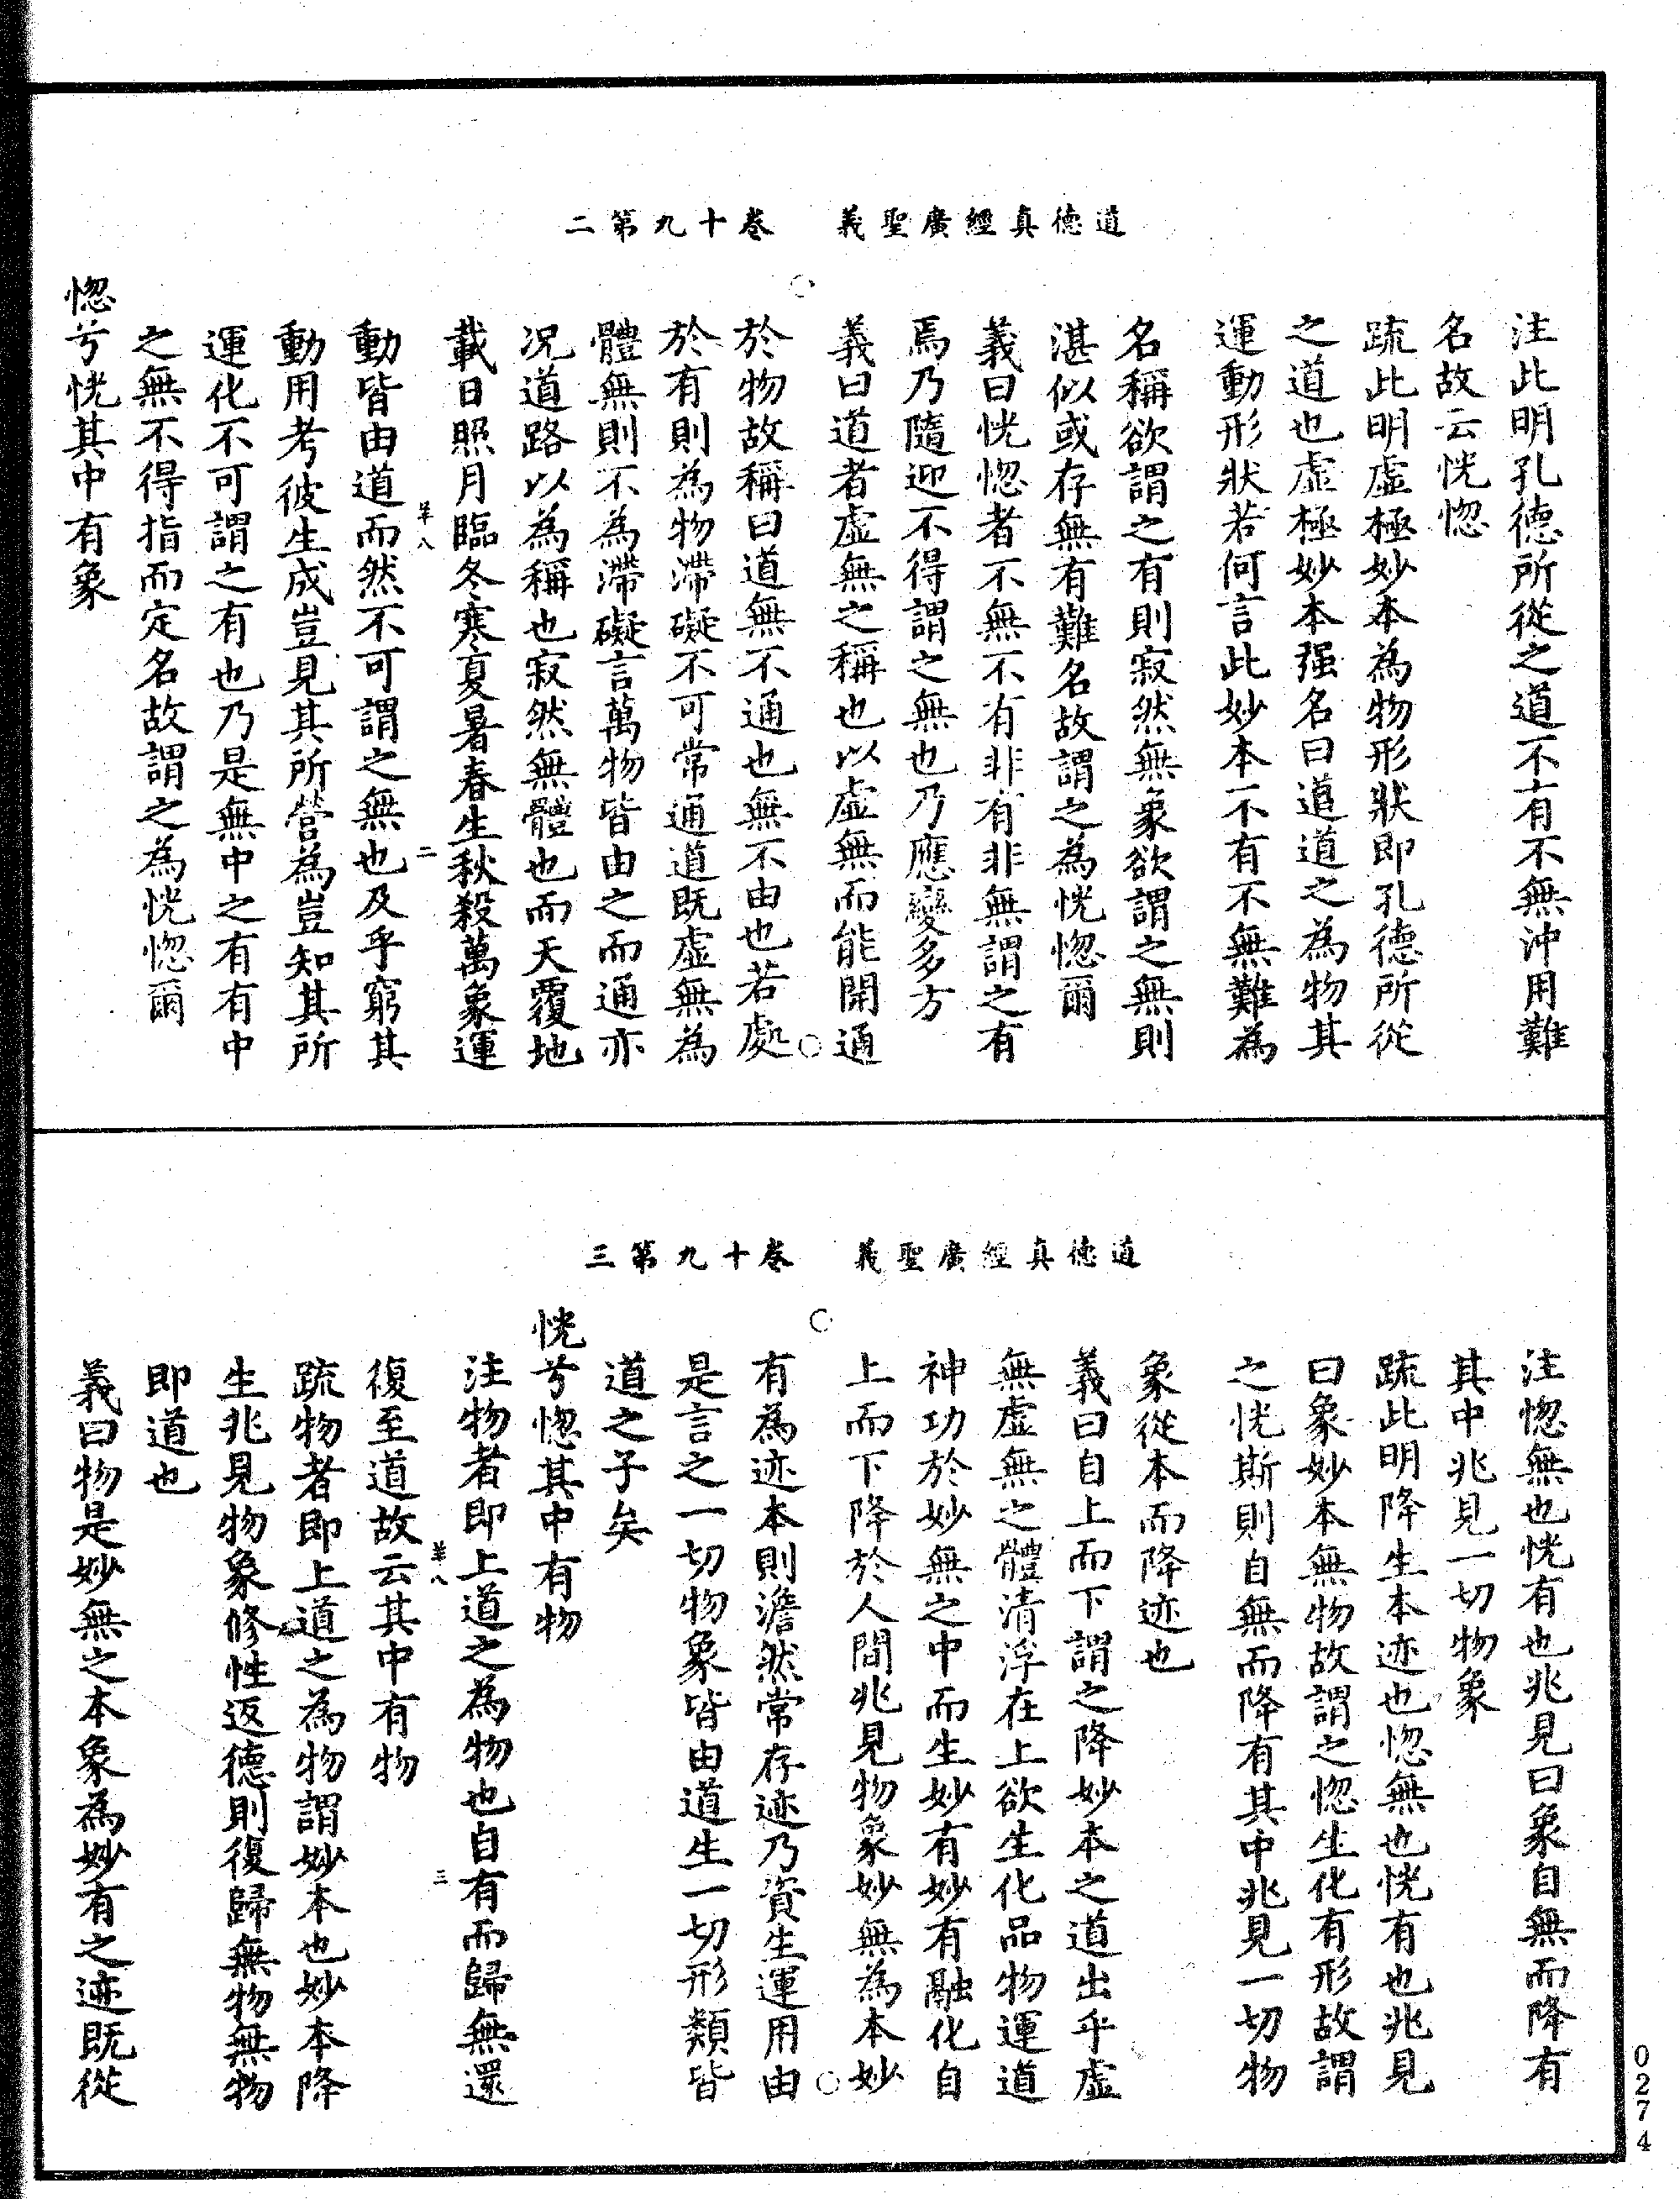 道德真經廣聖義　卷十九第二
注此明孔德所從之道不有不無沖用難
名故云恍惚
疏此明虛極妙本為物形狀即孔德所從
之道也虛極妙本强名曰道道之為物其
運動形狀若何言此妙本不有不無難為
名稱欲謂之有則寂然無象欲謂之無則
湛似或存無有難名故謂之為恍惚爾
義曰恍惚者不無不有非有非無謂之有
焉乃隨迎不得謂之無也乃應變多方
義曰道者虛無之稱也以虛無而能開通
於物故稱曰道無不通也無不由也若處
於有則為物滯礙不可常通道既虛無為
體無則不為滯礙言萬物皆由之而通亦
况道路以為稱也寂然無體也而天覆地
載日照月臨冬寒夏暑春生秋殺萬象運
羊八　二
動皆由道而然不可謂之無也及乎窮其
動用考彼生成豈見其所營為豈知其所
運化不可謂之有也乃是無中之有有中
之無不得指而定名故謂之為恍惚爾
惚兮恍其中有象
道德真經廣聖義　卷十九第三
注惚無也恍有也兆見曰象自無而降有
其中兆見一切物象
疏此明降生本迹也惚無也恍有也兆見
曰象妙本無物故謂之惚生化有形故謂
之恍斯則自無而降有其中兆見一切物
象從本而降迹也
義曰自上而下謂之降妙本之道出乎虛
無虛無之體清浮在上欲生化品物運道
神功於妙無之中而生妙有妙有融化自
上而下降於人間兆見物象妙無為本妙
有為迹本則澹然常存迹乃資生運用由
是言之一切物象皆由道生一切形類皆
道之子矣
恍兮惚其中有物
注物者即上道之為物也自有而歸無還
羊八　三
復至道故云其中有物
疏物者即上道之為物謂妙本也妙本降
生兆見物象修性返德則復歸無物無物
即道也
義曰物是妙無之本象為妙有之迹既從
0274